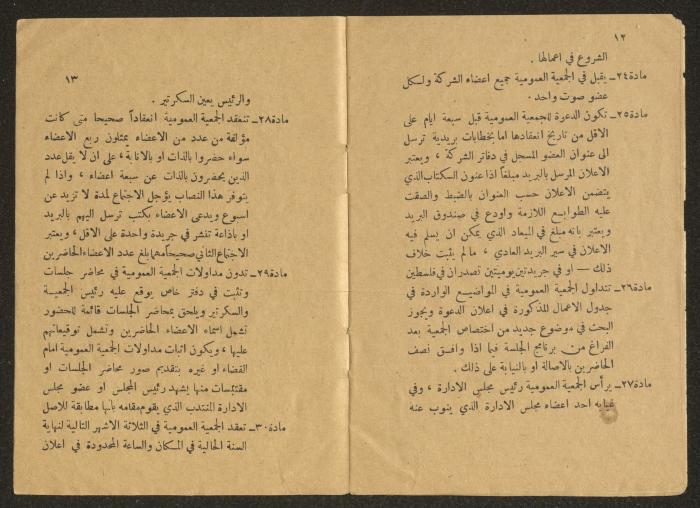 ١٢
الشروع في اعمالها .
مادة٢٤ـ يقبل في الجمعية العمومية جميع اعضاء الشركة ولسكل
عضو صوت واحد .
مادة٢٥ـ تكون الدعوة للجمعية العمومية قبل سبعة ايام على
الاقل من تاريخ انعقادها اما بخطابات بريدية ترسل
الى عنوان العضو المسجل في دفاتر الشركة ، ويعتبر
الاعلان المرسل بالبريد مبلغاً اذا عنون السكتاب الذي
يتضمن الاعلان حسب العنوان بالضبط والصقت
عليه الطوابع اللازمة واودع في صندوق البريد
ويعتبر بانه مبلغ في الميعاد الذي يمكن ان يسلم فيه
الاعلان في سير البريد العادي ، مالم يثبت خلاف
ذلك — او في جريدتين يوميتين تصدران في فلسطين
مادة٢٦ـ تتداول الجمعية العمومية في المواضيع الواردة في
جدول الاعمال المذكورة في اعلان الدعوة ويجوز
البحث في موضوع جديد من اختصاص الجمعية بعد
الفراغ من برنامج الجلسة فيما اذا وافق نصف
الحاضرين بالاصالة او بالنيابة على ذلك .
مادة٢٧ـ يرأس الجمعية العمومية رئيس مجلس الادارة ، وفي
غيابه احد اعضاء مجلس الادارة الذي ينوب عنه
١٣
والرئيس يعين السكرتير .
مادة٢٨ـ تنعقد الجمعية العمومية انعقاداً صحيحا متى كانت
مؤلفة من عدد من الاعضاء يمثلون ربع الاعضاء
سواء حضروا بالذات او بالانابة ، على ان لا يقل عدد
الذين يحضرون بالذات عن سبعة اعضاء ، واذا لم
يتوفر هذا النصاب يؤجل الاجتماع لمدة لا تزيد عن
اسبوع ويدعى الاعضاء بكتب ترسل اليهم بالبريد
او باذاعة تنشر في جريدة واحدة على الاقل ، ويعتبر
الاجتماع الثاني صحيحاً مهما بلغ عدد الاعضاء الحاضرين
مادة٢٩ـ تدون مداولات الجمعية العمومية في محاضر جلسات
وتثبت في دفتر خاص يوقع عليه رئيس الجمعية
والسكرتير ويلحق بمحاضر الجلسات قائمة للحضور
تشمل اسماء الاعضاء الحاضرين وتشمل توقيعاتهم
عليها ، ويكون اثبات مداولات الجمعية العمومية امام
القضاء او غيره بتقديم صور محاضر الجلسات او
مقتبسات منها يشهد رئيس المجلس او عضو مجلس
الادارة المنتدب الذي يقوم مقامه بأنها مطابقة للاصل
مادة٣٠ـ تعقد الجمعية العمومية في الثلاثة الاشهر التالية لنهاية
السنة الحالية في المسكان والساعة المحدودة في اعلان